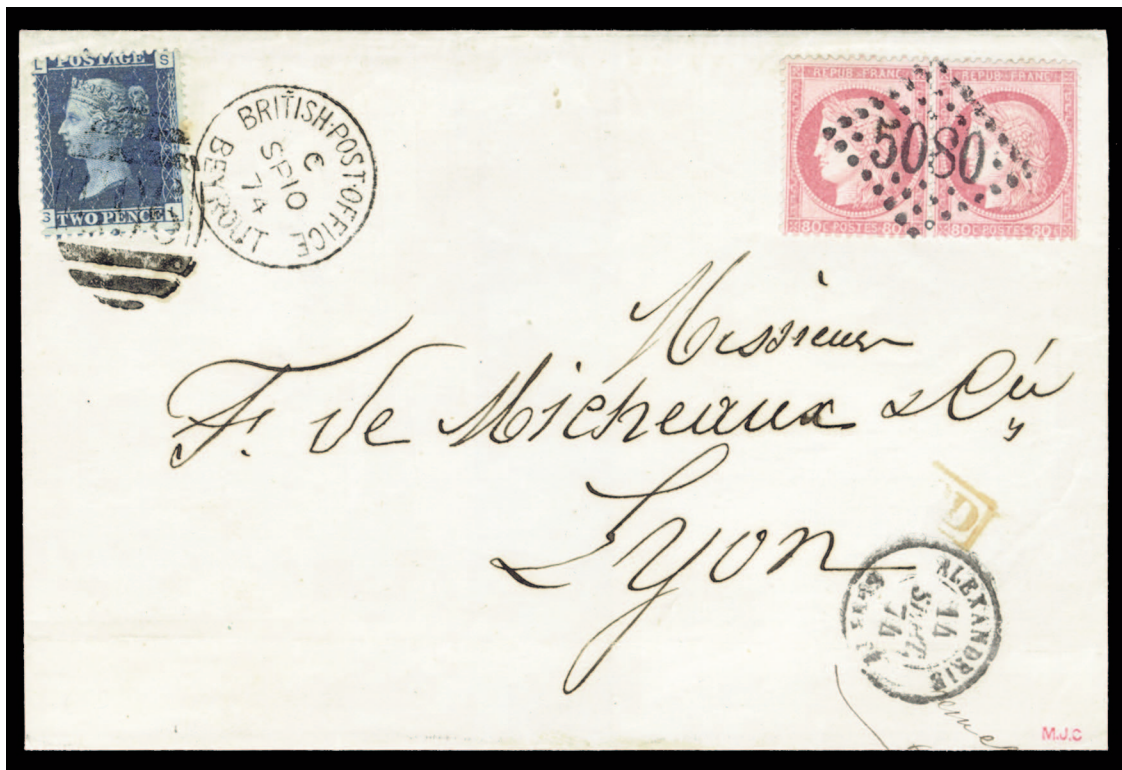 L S
POSTAGE
S L
TWO PENCE
BRITISH·POST·OFFICE
BEYROUT
C
SP 10
74
REPUB·FRANC·
80 C·POSTES·80
REPUB·FRANC·
80 C·POSTES·80 C
5080
Messieurs
F. de Micheaux & Cie
Lyon
PD
ALEXANDRIE
14
SEPT
74
M.J.C